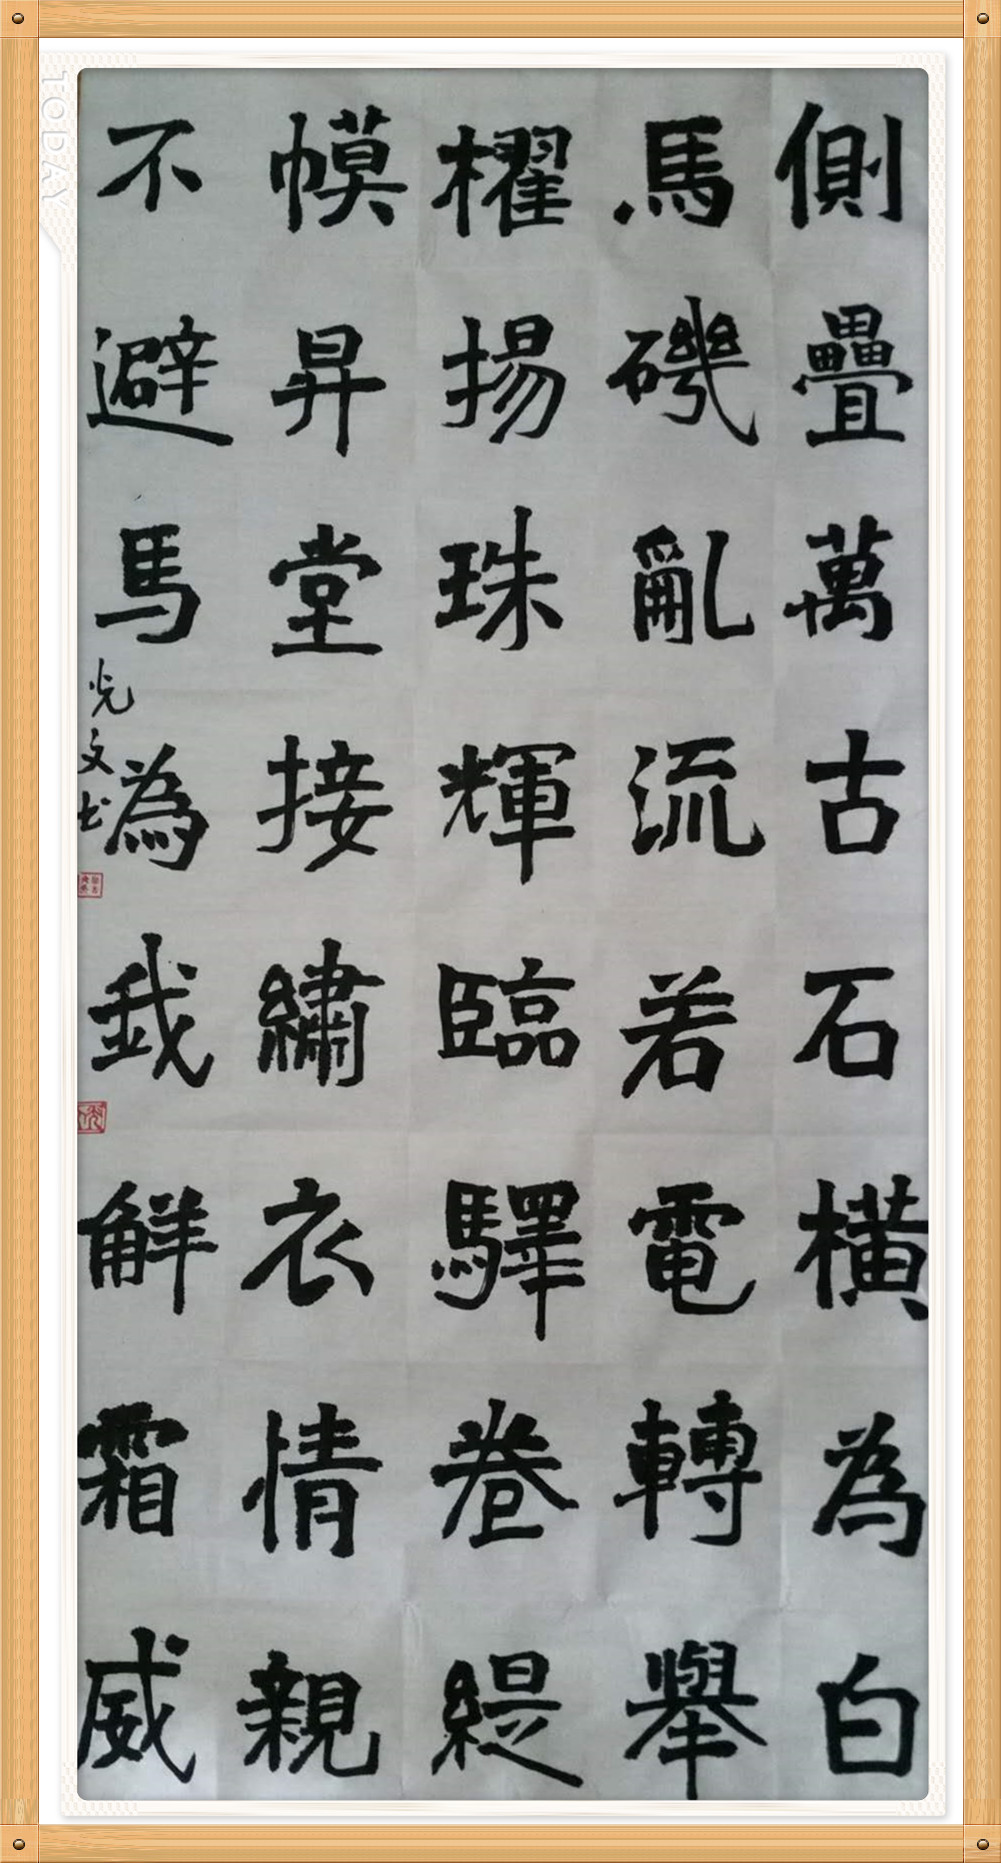 側疊萬古石橫為白
馬磯亂流若電轉舉
櫂揚珠輝臨驛卷緹
幙昇堂接繡衣情親
不避馬為我解霜威
光文书
TODAY